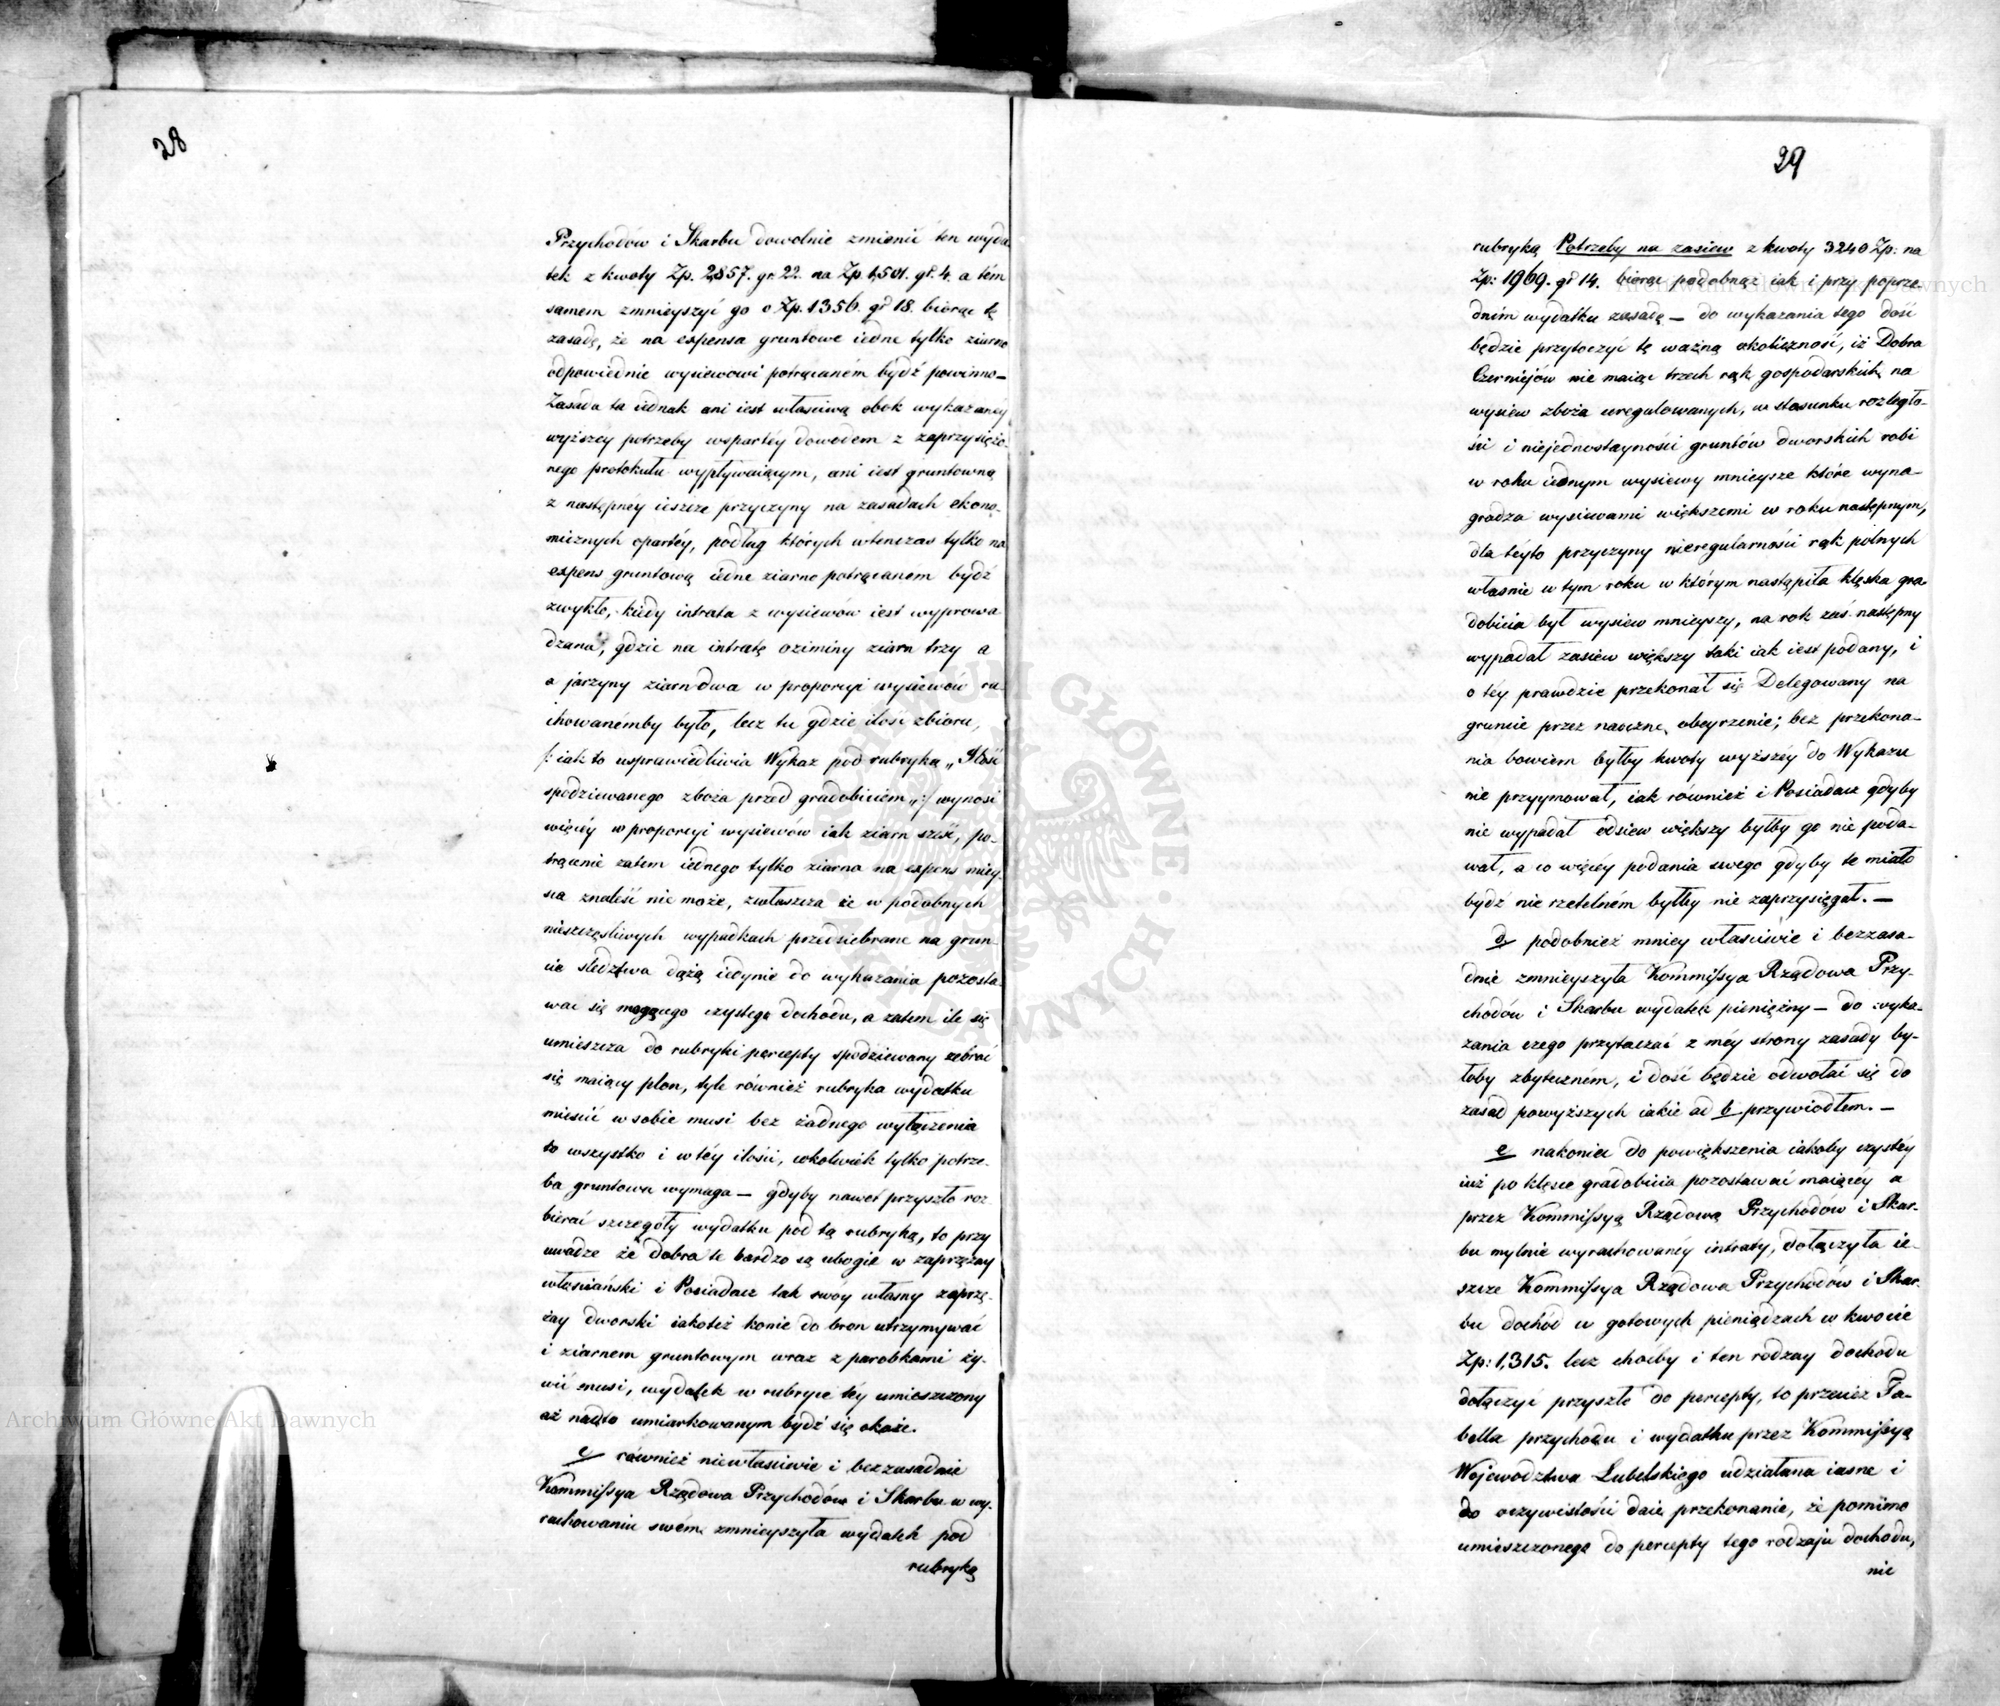 28
Przychodów i Skarbu dowolnie zmienić ten wyda
tek z kwoty Zp. 2857. gr. 22. na Zp. 1,501. gr. 4. a tém
samem zmnieyszyć go o Zp. 1356. gr 18. biorąc tę
zasadę, że na expensa gruntowe iedne tylko ziarno
odpowiednie wysiewowi potrącaném bydź powinno —
Zasada ta iednak ani iest właściwą obok wykazanéy
wyższey potrzeby wspartéy dowodem z zaprzysiężo-
nego protokułu wypływaiącym, ani iest gruntowną
z następnéy ieszcze przyczyny na zasadach ekono-
micznych opartéy, podług których wtenczas tylko na
expens gruntową iedne ziarno potrącanem bydź
zwykło, kiedy intrata z wysiewów iest wyprowa-
dzana, gdzie na intratę oziminy ziarn trzy a
a jarzyny ziarn dwa w proporcyi wysiewów ra-
chowanémby było, lecz tu gdzie ilość zbioru,
/: iak to usprawiedliwia Wykaz pod rubryką „Ilość
spodziewanego zboża przed gradobiciem„ :/ wynosi
więcéy w proporcyi wysiewów iak ziarn sześć, po-
trącenie zatem iednego tylko ziarna na expens miey-
sca znaleść nie może, zwłaszcza że w podobnych
nieszczęśliwych wypadkach przedsiebrane na grun-
cie śledztwa dążą iedynie do wykazania pozosta-
wać się mogącego czystego dochodu, a zatem ile się
umieszcza do rubryki percepty spodziewany zebrać
się maiący plon, tyle również rubryka wydatku
mieścić w sobie musi bez żadnego wyłączenia
to wszystko i w téy ilości, cokolwiek tylko potrze-
ba gruntowa wymaga — gdyby nawet przyszło roz
bierać szczegóły wydatku pod tą rubryką, to przy
uwadze że dobra te bardzo są ubogie w zaprzęzay
włościański i Posiadacz tak swoy własny zaprzę-
żay dworski iakoteż konie do bron utrzymywać
i ziarnem gruntowym wraz z parobkami ży-
wić musi, wydatek w rubryce téy umieszczony
aż nadto umiarkowanym bydź się okaże.
c/ również niewłaściwie i bezzasadnie
Kommissya Rządowa Przychodów i Skarbu w wy-
rachowaniu swém zmnieyszyła wydatek pod
rubryką
29
rubryką Potrzeby na zasiew z kwoty 3240 Zp: na
Zp: 1969. gr 14. biorąc podobnąż iak i przy poprze-
dnim wydatku zasadę — do wykazania tego dość
będzie przytoczyć tę ważną okoliczność, iż Dobra
Czerniejów nie maiąc trzech rąk gospodarskich na
wysiew zboża uregulowanych, w stosunku rozległo-
ści i niejednostayności gruntów dworskich robi
w roku iednym wysiewy mnieysze które wyna-
gradza wysiewami większemi w roku następnym,
dla téyto przyczyny nieregularności rąk polnych
właśnie w tym roku w którym nastąpiła klęska gra-
dobicia był wysiew mnieyszy, na rok zaś następny
wypadał zasiew większy taki iak iest podany, i
o téy prawdzie przekonał się Delegowany na
gruncie przez naoczne obeyrzenie; bez przekona-
nia bowiem byłby kwoty wyższéy do Wykazu
nie przyymował, iak również i Posiadacz gdyby
nie wypadał odsiew większy byłby go nie poda-
wał, a co więcéy podania swego gdyby te miało
bydź nie rzetelném byłby nie zaprzysięgał. —
d/ podobnież mniey właściwie i bezzasa-
dnie zmnieyszyła Kommissya Rządowa Przy-
chodów i Skarbu wydatek pieniężny — do wyka-
zania czego przytaczać z méy strony zasady by-
łoby zbyteczném, i dość będzie odwołać się do
zasad powyższych iakie ad b przywiodłem. —
e/ nakoniec do powiększenia iakoby czystéy
iuż po klęsce gradobicia pozostawać maiącéy a
przez Kommissyą Rządową Przychodów i Skar-
bu mylnie wyrachowanéy intraty, dołączyła ie-
szcze Kommissya Rządowa Przychodów i Skar-
bu dochód w gotowych pieniądzach w kwocie
Zp: 1,315. lecz choćby i ten rodzay dochodu
dołączyć przyszło do percepty, to przecież Ta-
bella przychodu i wydatku przez Kommissyą
Województwa Lubelskiego udziałana iasne i
do oczywistości daie przekonanie, że pomimo
umieszczonego do percepty tego rodzaju dochodu,
nie
Archiwum Główne Akt Dawnych